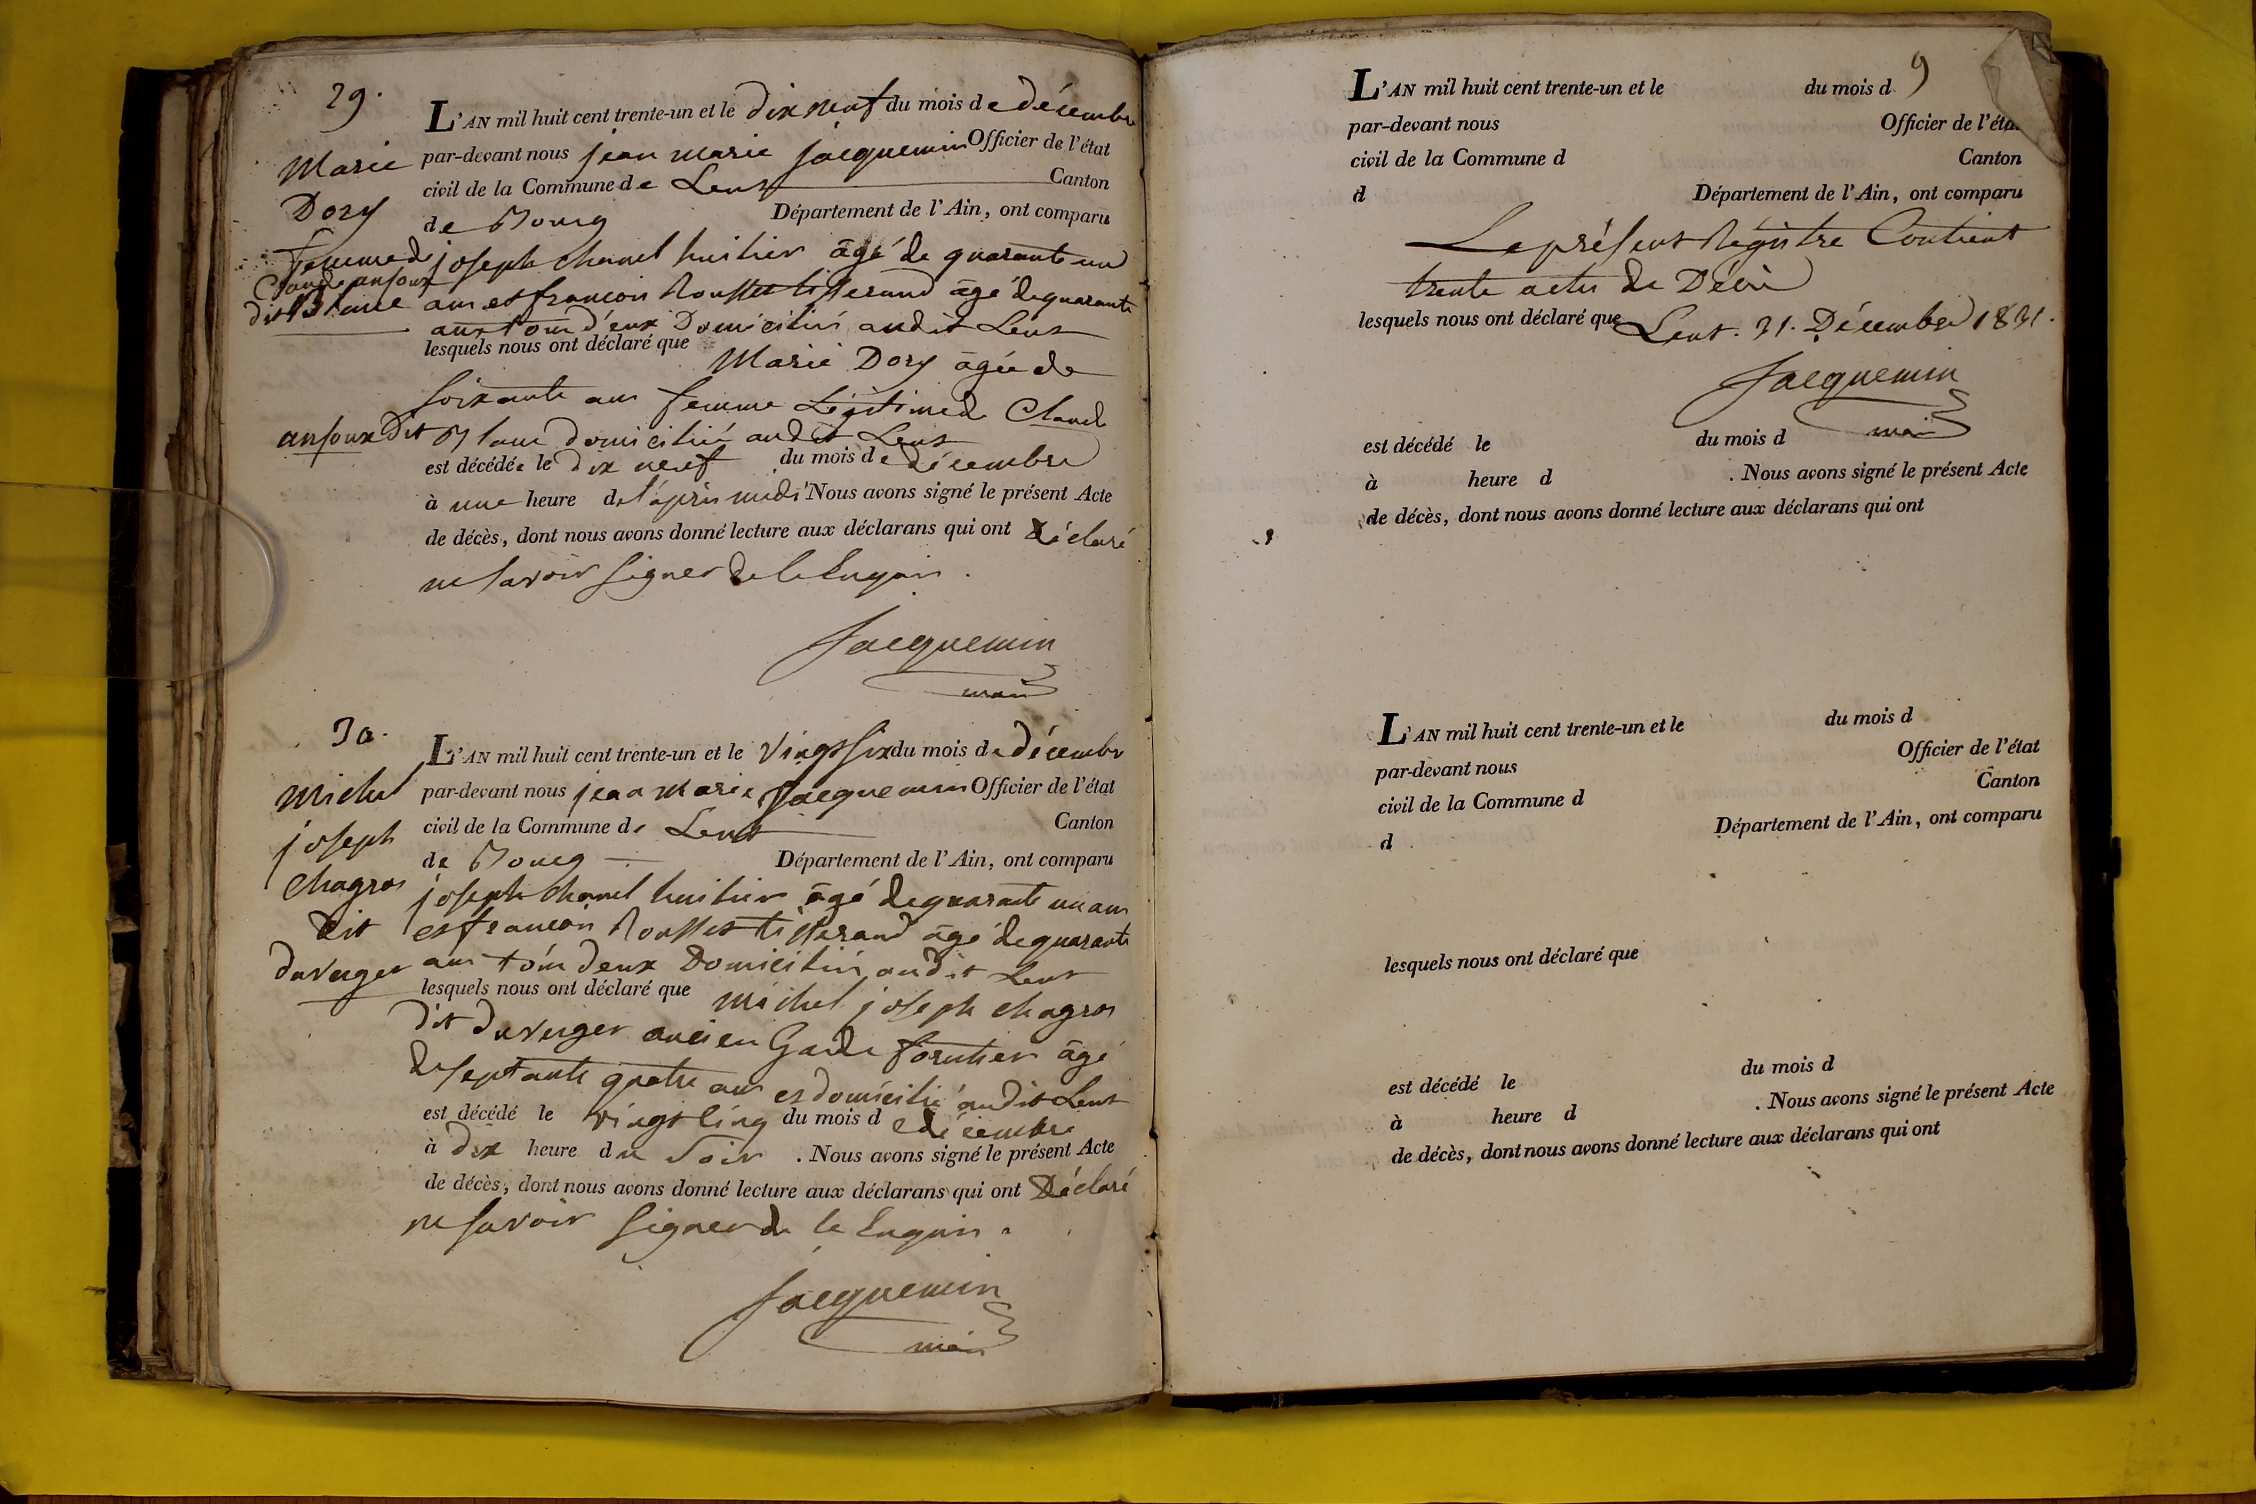 29.
L'AN mil huit cent trente-un et le dix neuf du mois de décembre
Marie par-devant nous jean marie jacquemin Officier de l'état
civil de la Commune de Lent Canton
Dory
de Bourg Département de l'Ain, ont comparu
femme de joseph chanel huilier âgé de quarante un
Claude anjoux
dit Blanc ans et françois Rousset tisserand âgé de quarante
ans tous d'eux Domiciliés audit Lent
lesquels nous ont déclaré que Marie Dory âgée de
soixante ans femme Légitime de Claude
anjoux Dit Blanc domiciliée audit Lent
est décédée le dix neuf du mois de décembre
à une heure de l'après midi Nous avons signé le présent Acte
de décès, dont nous avons donné lecture aux déclarans qui ont Déclaré
ne savoir signer de le Enquis.
Jacquemin
maire
30.
L'AN mil huit cent trente-un et le vingt six du mois de décembre
Michel par-devant nous jean Marie Jacquemin Officier de l'état
civil de la Commune de Lent Canton
joseph
de Bourg Département de l'Ain, ont comparu
Chagros joseph chanel huilier âgé de quarante un ans
dit et françois Rousset tisserand âgé de quarante
duverger ans tous deux Domiciliés audit Lent
lesquels nous ont déclaré que Michel joseph chagros
dit duverger ancien Garde forestier âgé
de septante quatre ans et domicilié audit Lent
est décédé le vingt cinq du mois d e décembre
à dix heure du Soir . Nous avons signé le présent Acte
de décès, dont nous avons donné lecture aux déclarans qui ont Déclaré
ne savoir signer de le Enquis.
Jacquemin
maire
9
L'AN mil huit cent trente-un et le du mois d
par-devant nous Officier de l'éta
civil de la Commune d Canton
d Département de l'Ain, ont comparu
Le présent Régistre Contient
trente actes de Décès
lesquels nous ont déclaré que Lent. 31. Décembre 1831.
Jacquemin
maire
est décédé le du mois d
à heure d . Nous avons signé le présent Acte
de décès, dont nous avons donné lecture aux déclarans qui ont
L'AN mil huit cent trente-un et le du mois d
par-devant nous Officier de l'état
civil de la Commune d Canton
d Département de l'Ain, ont comparu
lesquels nous ont déclaré que
est décédé le du mois d
à heure d . Nous avons signé le présent Acte
de décès, dont nous avons donné lecture aux déclarans qui ont